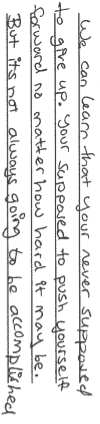 We can learn that your never supposed
to give up. Your supposed to push yourself
forward no matter how hard it may be.
But it's not always going to be accomplished